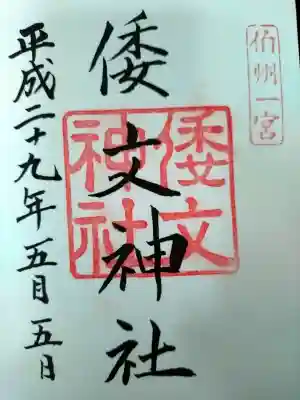 伯州一宮
倭文神社
倭文神社
平成二十九年五月五日